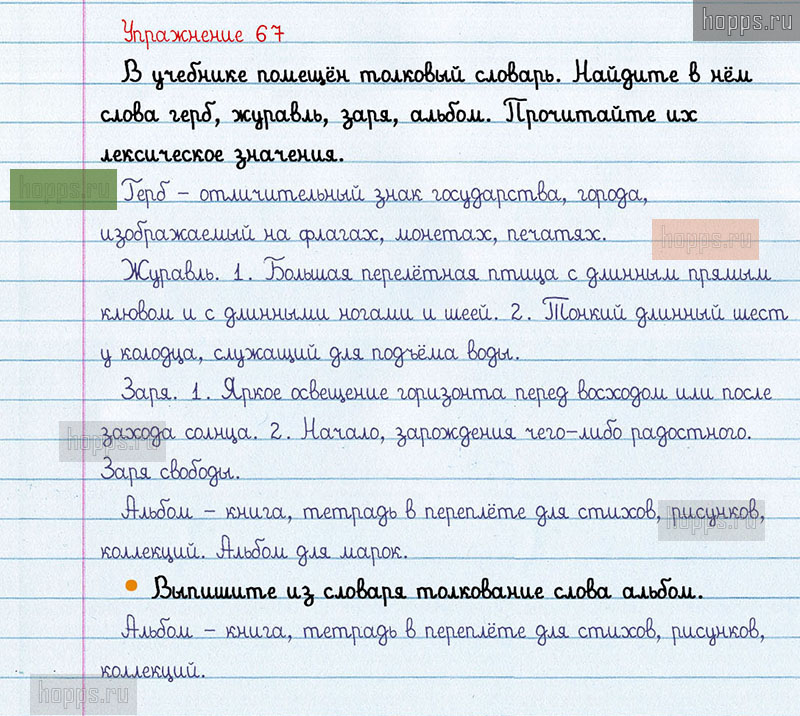 hopps.ru
Упражнение 67
В учебнике помещён толковый словарь. Найдите в нём
слова герб, журавль, заря, альбом. Прочитайте их
лексическое значения.
hopps.ru
Герб – отличительный знак государства, города,
изображаемый на флагах, монетах, печатях.
hopps.ru
Журавль. 1. Большая перелётная птица с длинным прямым
клювом и с длинными ногами и шеей. 2. Тонкий длинный шест
у колодца, служащий для подъёма воды.
Заря. 1. Яркое освещение горизонта перед восходом или после
захода солнца. 2. Начало, зарождения чего-либо радостного.
hopps.ru
Заря свободы.
Альбом – книга, тетрадь в переплёте для стихов, рисунков,
hopps.ru
коллекций. Альбом для марок.
• Выпишите из словаря толкование слова альбом.
Альбом – книга, тетрадь в переплёте для стихов, рисунков,
коллекций.
hopps.ru